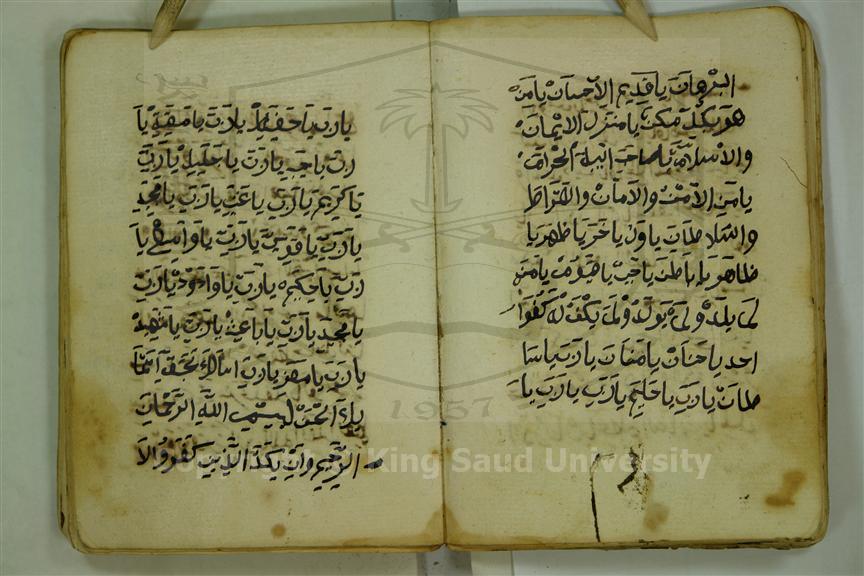 البرهان يا قديم الاحسان يا من
هو بكل مكان يا منزل الايمان
والاسلام يا صاحب البيت الحرام
يا من الامن والامان والصراط
والسلا طان يا اول يا اخر يا ظهر يا
ظاهر يا باطن يا حي يا قيوم يا من
لم يلد ولم يولد ولم يكن له كفوا
احد يا حنان يا منان يا رب يا سا
طان يا رب يا حليم يا رب يا رب يا
يا رب يا حفيظ يا رب يا مقيت يا
رب يا حيب يا رب يا جليل يا رب
يا كريم يا رب يا يا رب يا مجيد
يا رب يا قريب يا رب يا واسع يا
رب يا حكيم يا رب يا ودود يا رب
يا مجيد يا رب يا باعث يا رب يا شهيد
يا رب يا يا رب اسالك بحق
الله الرحمان
الرحيم وان يكاد الذين كفروا لا
1957
King Saud University